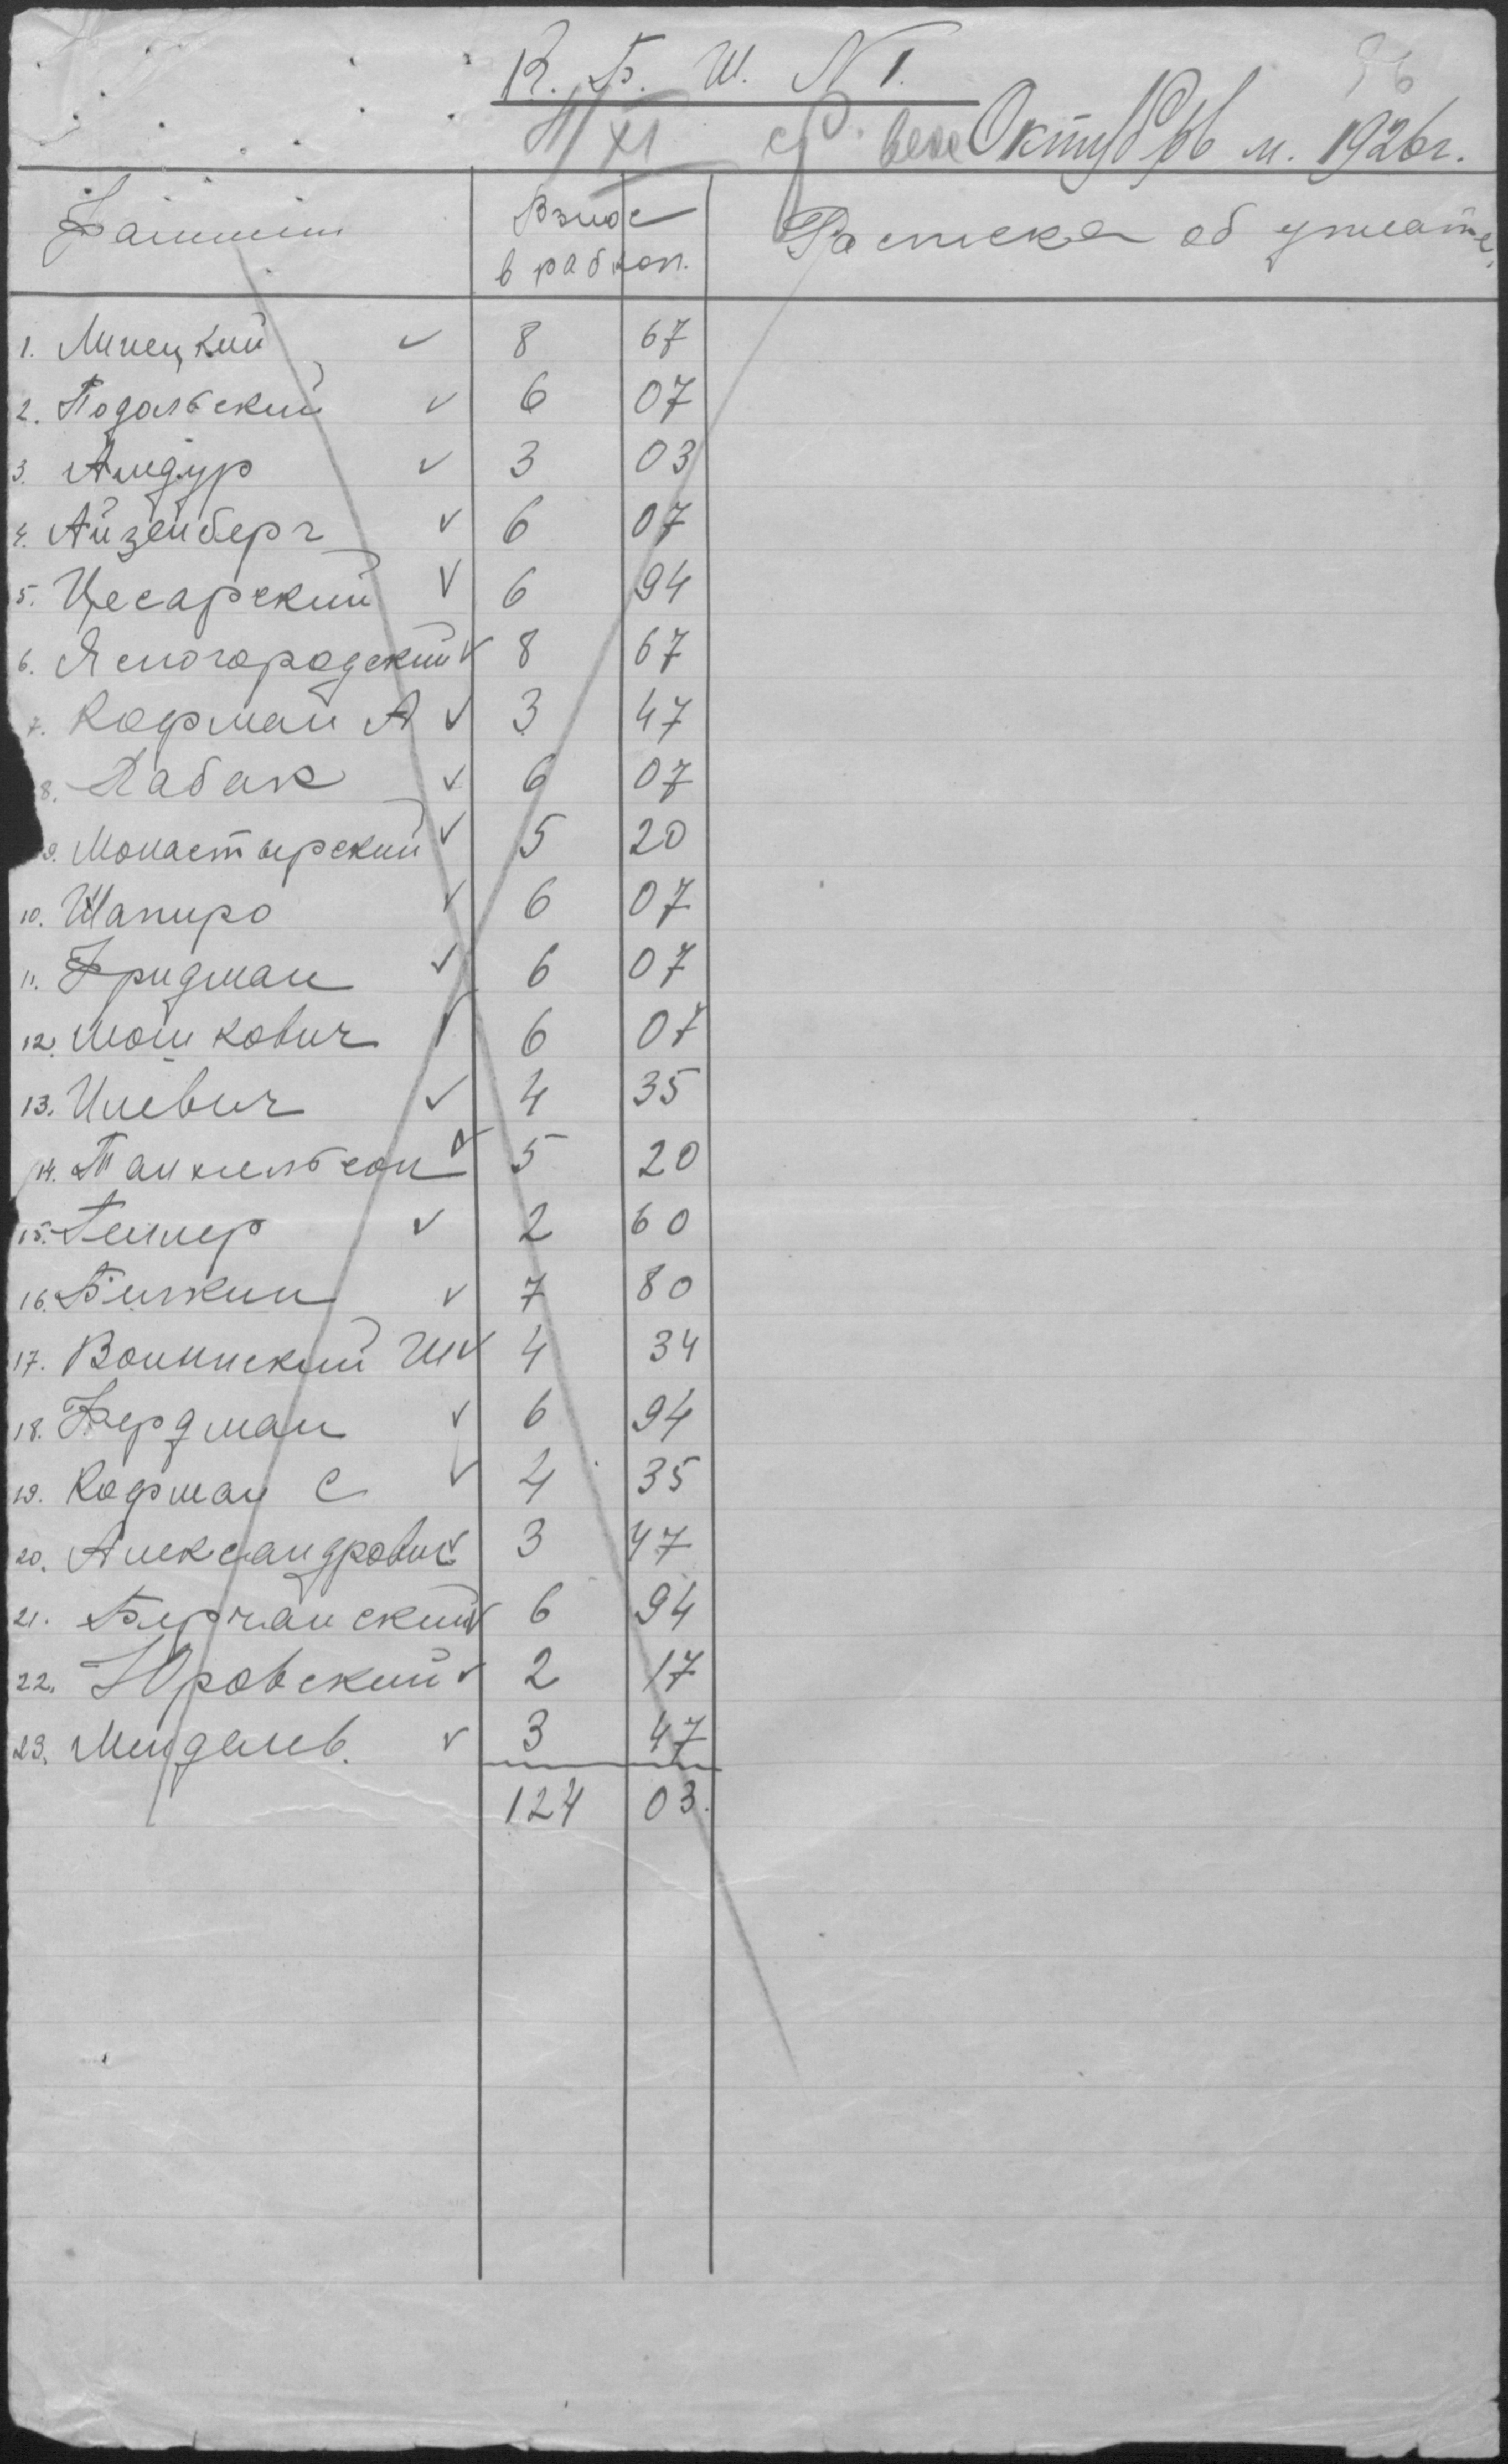 К. Б. Ш. N 1.
96
XI
Октябрь м. 1926 г.
Фамилии
Взнос
в раб коп.
Расписка об уплате.
1. Линецкий ✓ 8 67
2. Подольский ✓ 6 07
3. Амдур ✓ 3 03
4. Айзенберг ✓ 6 07
5. Цесарский ✓ 6 94
6. Ясногородский ✓ 8 67
7. Кофман А ✓ 3 47
8. Табак ✓ 6 07
9. Монастырский ✓ 5 20
10. Шапиро ✓ 6 07
11. Фридман ✓ 6 07
12. Мошкович ✓ 6 07
13. Илевич ✓ 4 35
14. Танхельсон ✓ 5 20
15. Геллер ✓ 2 60
16. Билкин ✓ 7 80
17. Волынский Ш ✓ 4 34
18. Фердман ✓ 6 94
19. Кофман С ✓ 4 35
20. Александрович ✓ 3 47
21. Берчанский ✓ 6 94
22. Юровский ✓ 2 17
23. Мендалев. ✓ 3 47
124 03.